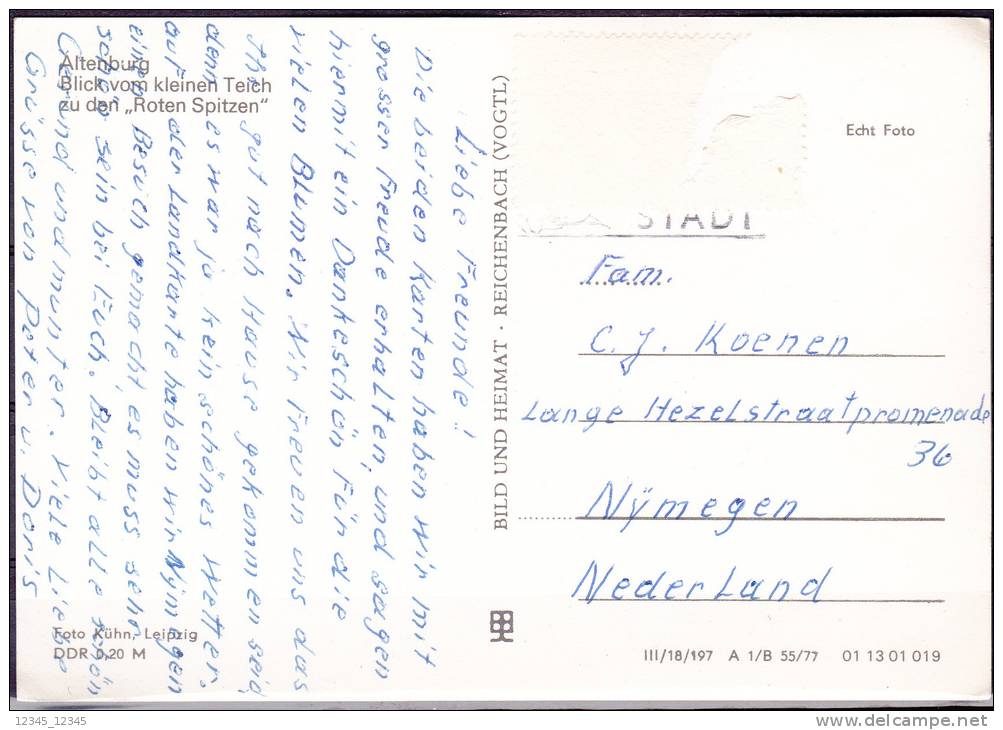 Altenburg
Blick vom kleinen Teich
zu den „Roten Spitzen“
Liebe Freunde!
Die beiden Karten haben wir mit
grosser Freude erhalten, und sagen
hiermit ein Dankeschön für die
vielen Blumen. Wir freuen uns das
Ihr gut nach Hause gekommen seid,
denn es war ja kein schönes Wetter.
auf der Landkarte haben wir Nÿmegen
einen Besuch gemacht, es muss sehr
schön sein bei Euch. Bleibt alle schön
Gesund und munter. Viele Liebe
Grüsse von Peter u. Doris
Foto Kühn, Leipzig
DDR 0,20 M
BILD UND HEIMAT · REICHENBACH (VOGTL)
Echt Foto
STADT
Fam.
C. J. Koenen
Lange Hezelstraatpromenade
36
Nÿmegen
Nederland
III/18/197 A 1/B 55/77 01 13 01 019
12345_12345
delcampe.net